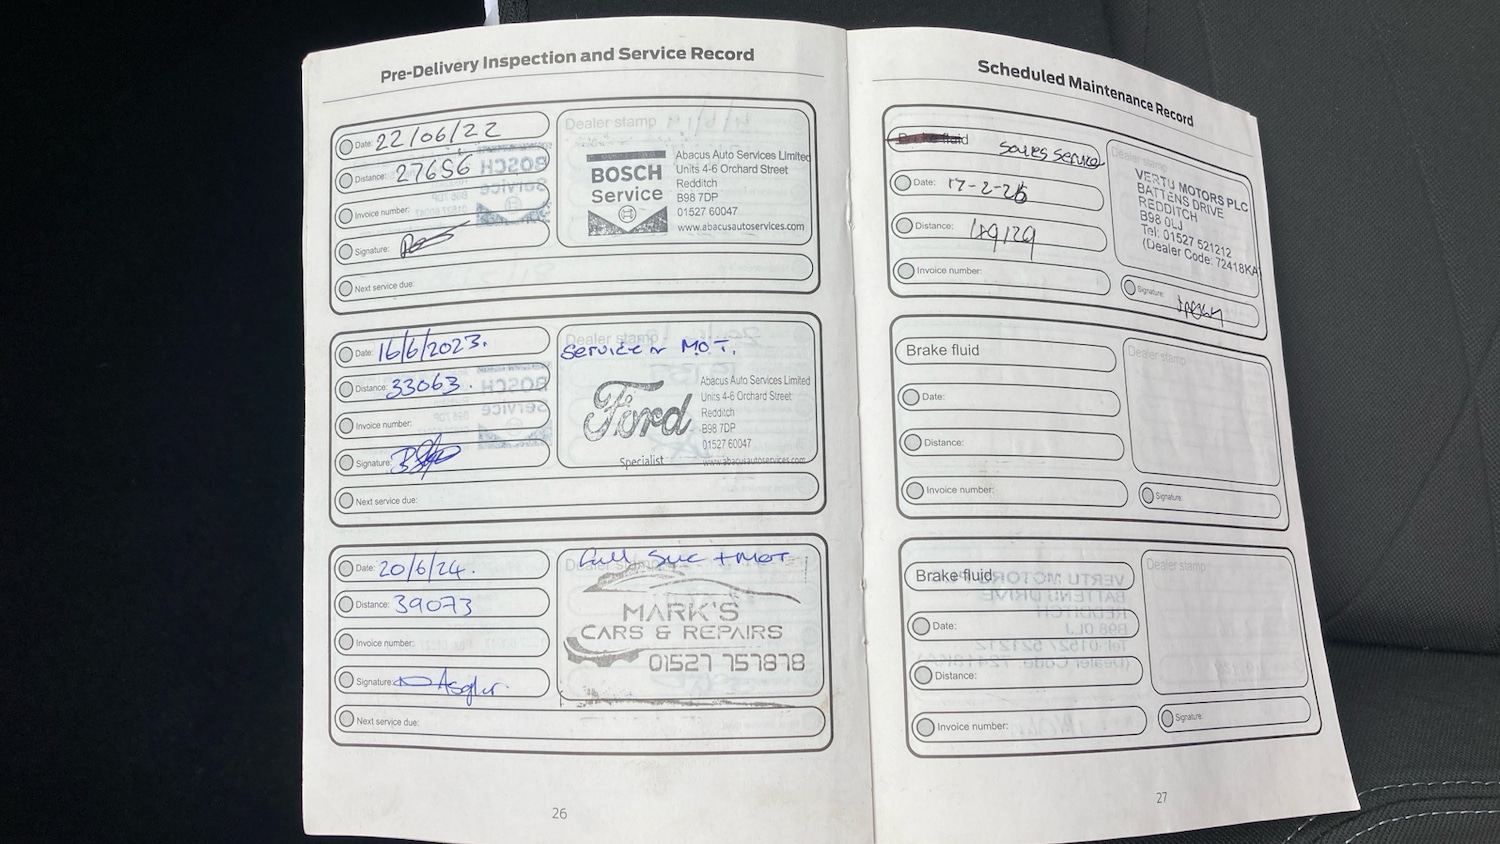 Pre-Delivery Inspection and Service Record
Date: 22/06/22
Distance: 27656
Invoice number:
Signature:
Next service due:
Dealer stamp
BOSCH
Service
Abacus Auto Services Limited
Units 4-6 Orchard Street
Redditch
B98 7DP
01527 60047
www.abacusautoservices.com
Date: 16/6/2023.
Distance: 33063.
Invoice number:
Signature:
Next service due:
Dealer stamp
Service MOT.
Ford
Specialist
Abacus Auto Services Limited
Units 4-6 Orchard Street
Redditch
B98 7DP
01527 60047
www.abacusautoservices.com
Date: 20/6/24.
Distance: 39073
Invoice number:
Signature:
Next service due:
Dealer stamp
Full Svc + MOT
MARK'S
CARS & REPAIRS
01527 757878
26
Scheduled Maintenance Record
Brake fluid
Sales Service
Date: 17-2-26
Distance: 49129
Invoice number:
Dealer stamp
VERTU MOTORS PLC
BATTENS DRIVE
REDDITCH
B98 0LJ
Tel: 01527 521212
(Dealer Code: 72418KA)
Signature:
Brake fluid
Date:
Distance:
Invoice number:
Dealer stamp
Signature:
Brake fluid
Date:
Distance:
Invoice number:
Dealer stamp
Signature:
27